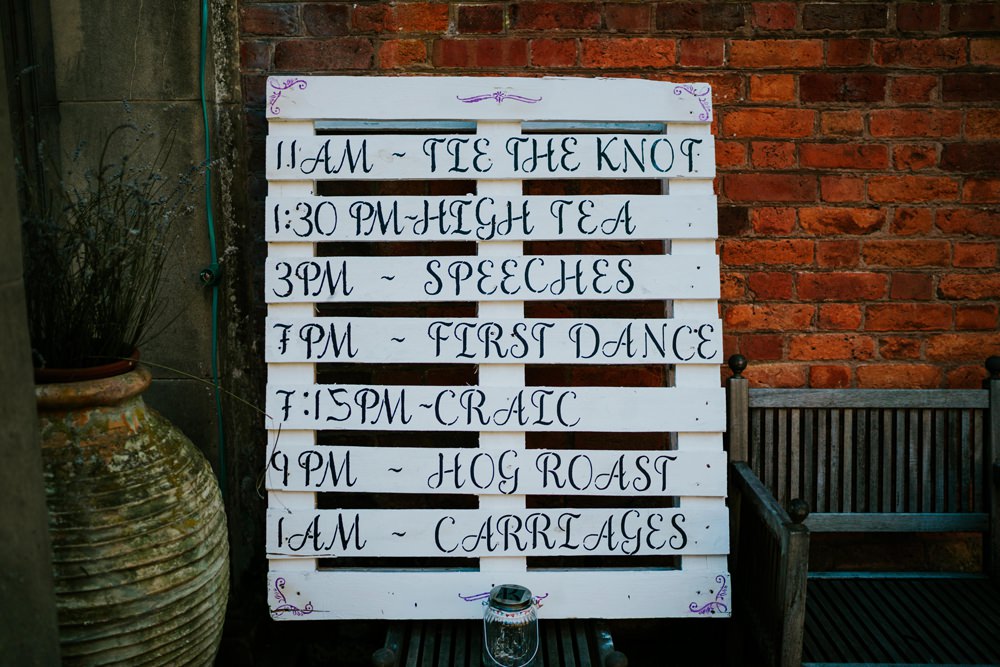 11AM ~ TIE THE KNOT
1:30 PM~HIGH TEA
3PM ~ SPEECHES
7PM ~ FIRST DANCE
7:15PM ~CRAIC
9PM ~ HOG ROAST
1AM ~ CARRIAGES